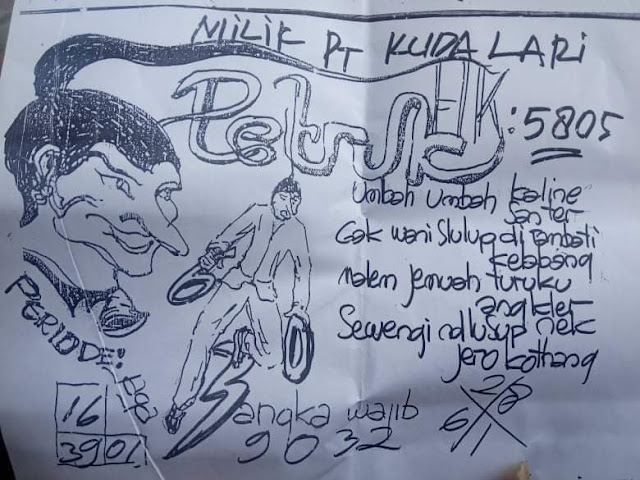 MILIK PT KUDA LARI
Petruk
EK : 5805
umbah umbah kaline
santer
Gak wani Slulup di tambati
kebabang
malem jemuah turuku
angkler
Sewengi ndlusup nek
jero kothang
PERIODE:
16
39 01
angka wajib
9032
2 8
6 1